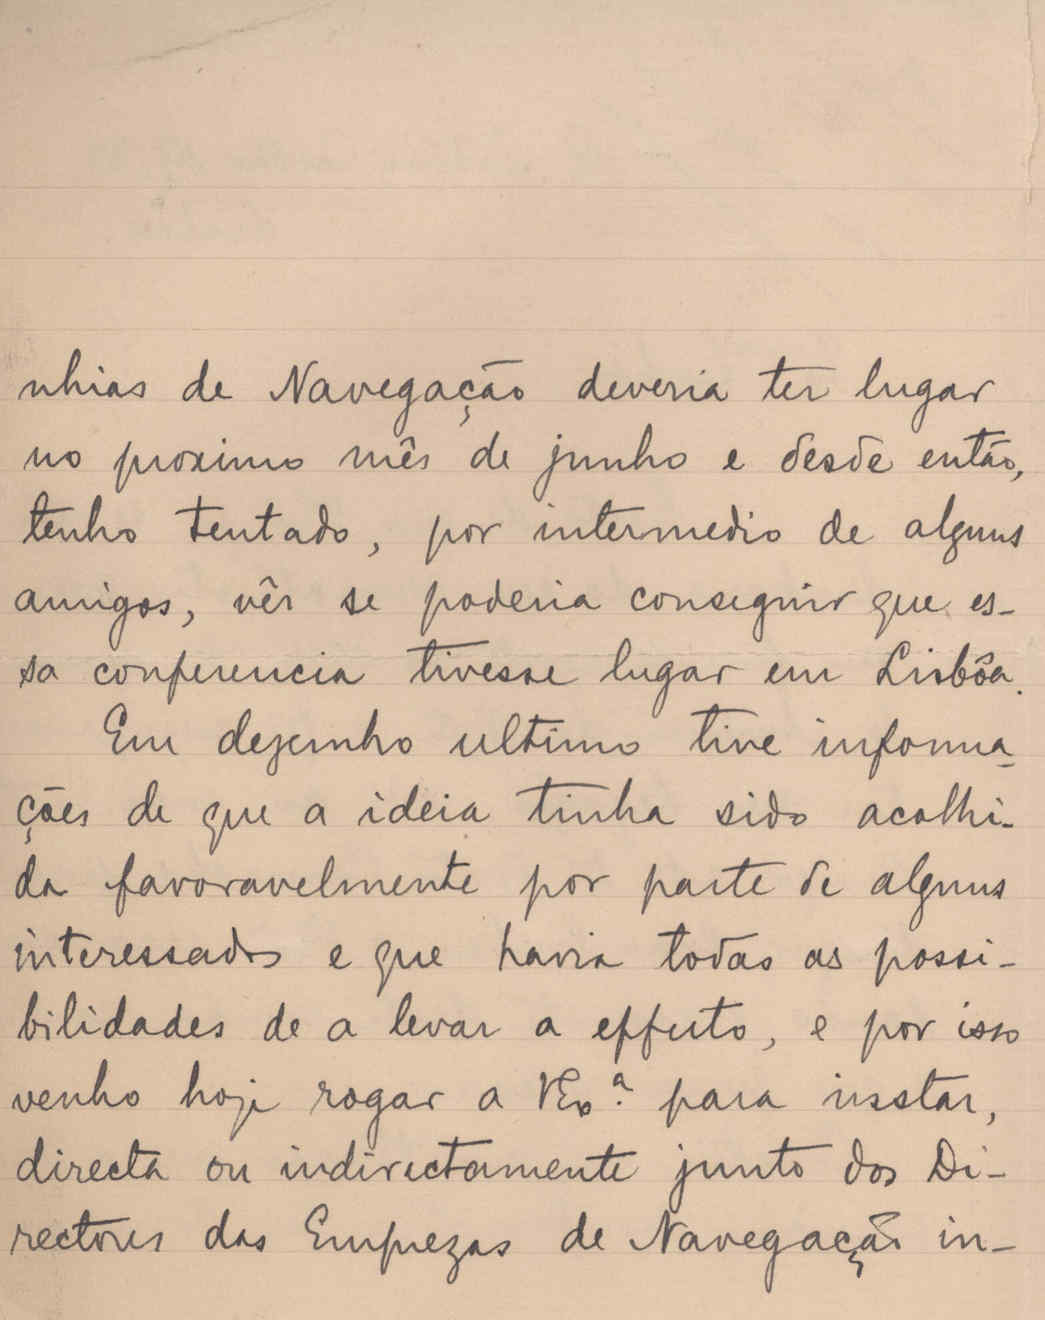 nhias de Navegação deveria ter lugar
no proximo mês de junho e desde então,
tenho tentado, por intermedio de alguns
amigos, vêr se poderia conseguir que es-
sa conferencia tivesse lugar em Lisbôa.
Em dezembro ultimo tive informa-
ções de que a ideia tinha sido acolhi-
da favoravelmente por parte de alguns
interessados e que havia todas as possi-
bilidades de a levar a effeito, e por isso
venho hoje rogar a VEx.ª para instar,
directa ou indirectamente junto dos Di-
rectores das Emprezas de Navegação in-